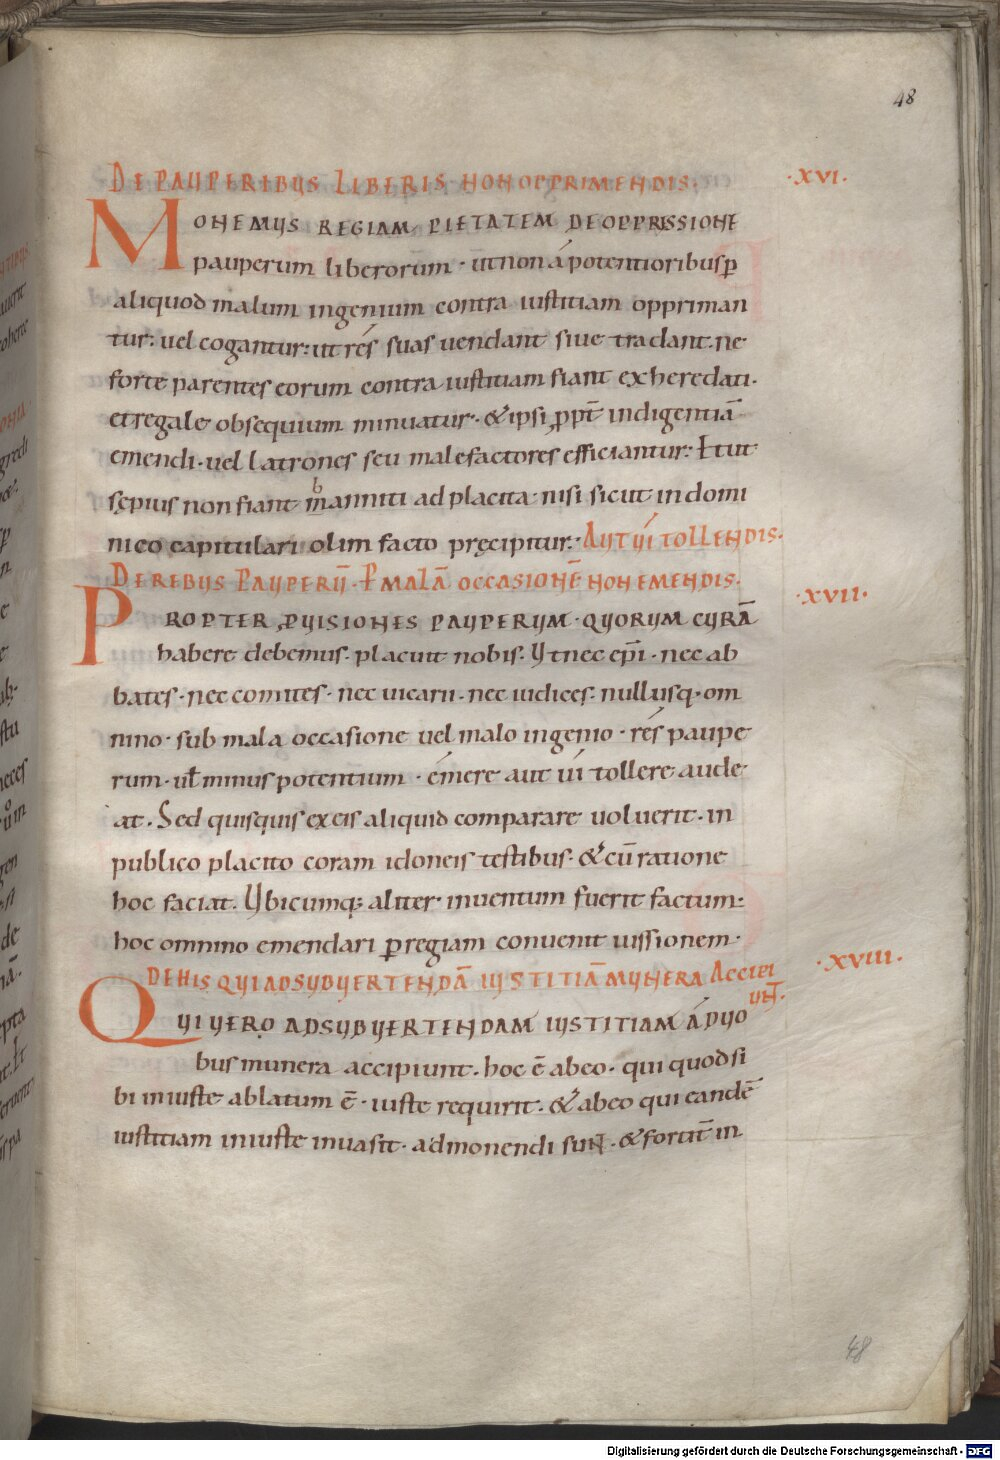 48
DE PAUPERIBUS LIBERIS NON OPPRIMENDIS. ·XVI·
MONEMUS REGIAM PIETATEM DE OPPRESSIONE
pauperum liberorum · ut non á potentioribus ꝑ
aliquod malum ingenium contra iustitiam oppriman
tur: uel cogantur: ut rés suas uendant siue tradant. ne
forte parentes eorum contra iustitiam fiant exheredati.
et regale obsequium minuatur · & ipsi ꝓpt̄ indigentiā
emendi · uel latrones seu malefactores efficiantur: Et ut
sępius non fiant manniti ad placita · nisi sicut in domi
b
nico capitulari olim facto pręcipitur: AUT UÍ TOLLENDIS.
DE REBUS PAUPERŪ · Ꝑ MALĀ OCCASIONĒ NON EMENDIS. ·XVII·
PROPTER ꝓUISIONES PAUPERUM · QUORUM CURĀ
habere debemus. placuit nobis. Ut nec ep̄i · nec ab
bates · nec comites · nec uicarii · nec iudices · nullusq· om
nino · sub mala occasione uel malo ingenio · rés paupe
rum · uł minus potentium · émere aut uí tollere aude
at. Sed quisquis ex eis aliquid comparare uoluerit · in
publico placito coram idoneis testibus · & cū ratione
hoc faciat. Ubicumq; aliter inuentum fuerit factum:
hoc omnino emendari ꝑ regiam conuenit iussionem ·
DE HIS QUI AD SUBUERTENDĀ IUSTITIĀ MUNERA ACCIPI ·XVIII·
UNT.
QUI UERO AD SUBUERTENDAM IUSTITIAM Á DUO
bus munera accipiunt · hoc ē ab eo · qui quod si
bi iniuste ablatum ē · iuste requirit · & ab eo qui eandē
iustitiam iniuste inuasit · admonendi sunt · & fortit̄ in
48
Digitalisierung gefördert durch die Deutsche Forschungsgemeinschaft - DFG